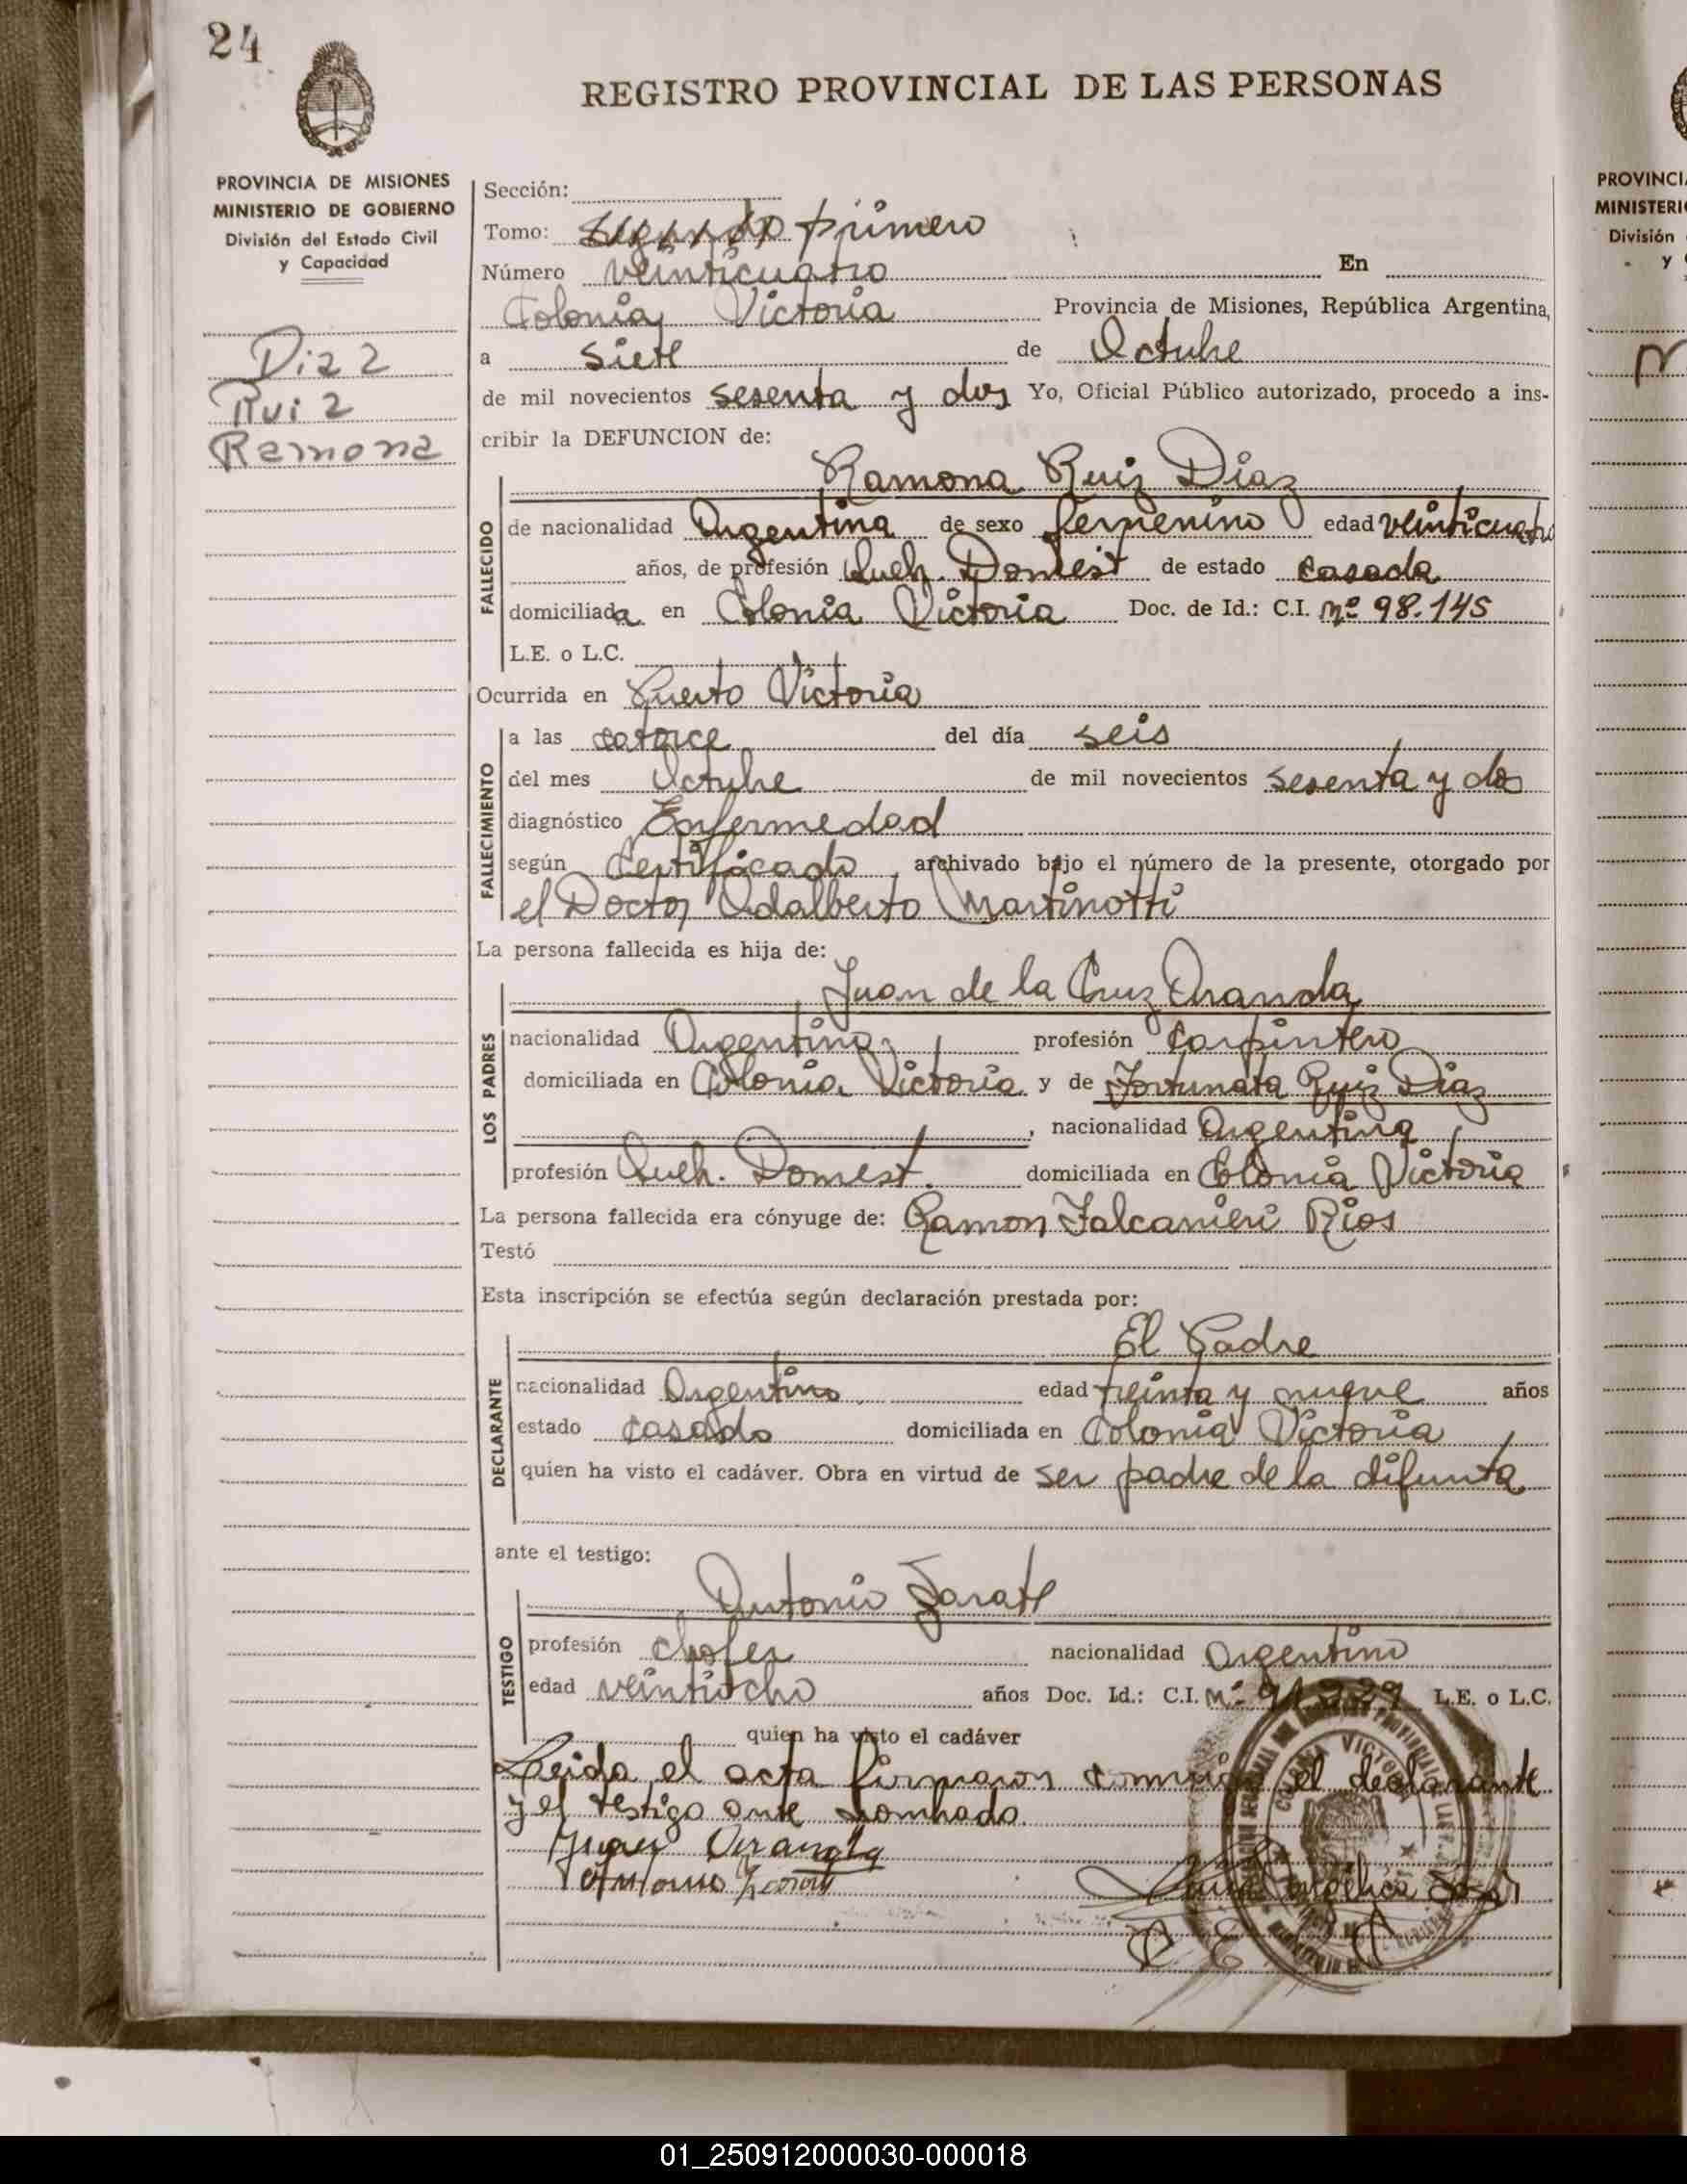 24
REGISTRO PROVINCIAL DE LAS PERSONAS
PROVINCIA DE MISIONES
MINISTERIO DE GOBIERNO
División del Estado Civil
y Capacidad
Diaz
Ruiz
Ramona
Sección:
Tomo: segundo primero
Número veinticuatro En
Colonia Victoria Provincia de Misiones, República Argentina,
a siete de Octubre
de mil novecientos sesenta y dos Yo, Oficial Público autorizado, procedo a ins-
cribir la DEFUNCION de:
Ramona Ruiz Diaz
FALLECIDO
de nacionalidad Argentina de sexo femenino edad veinticuatro
años, de profesión Queh. Domest de estado casada
domiciliada en Colonia Victoria Doc. de Id.: C.I. Nº 98.145
L.E. o L.C.
Ocurrida en Puerto Victoria
FALLECIMIENTO
a las catorce del día seis
del mes Octubre de mil novecientos sesenta y dos
diagnóstico Enfermedad
según Certificado archivado bajo el número de la presente, otorgado por
el Doctor Adalberto Martinotti
La persona fallecida es hija de:
Juan de la Cruz Aranda
LOS PADRES
nacionalidad Argentino profesión Carpintero
domiciliada en Colonia Victoria y de Fortunata Ruiz Diaz
, nacionalidad Argentina
profesión Queh. Domest. domiciliada en Colonia Victoria
La persona fallecida era cónyuge de: Ramon Falcanieri Rios
Testó
Esta inscripción se efectúa según declaración prestada por:
El Padre
DECLARANTE
nacionalidad Argentino edad treinta y nueve años
estado casado domiciliada en Colonia Victoria
quien ha visto el cadáver. Obra en virtud de ser padre de la difunta
ante el testigo:
Antonio Zarate
TESTIGO
profesión chofer nacionalidad Argentino
edad veintiocho años Doc. Id.: C.I. Nº L.E. o L.C.
quien ha visto el cadáver
Leida el acta firmaron conmigo el declarante
y el testigo ante nombrado.
Juan Aranda
Antonio Zarate
COLONIA VICTORIA
PROVINCI
MINISTERI
División
y
01_250912000030-000018